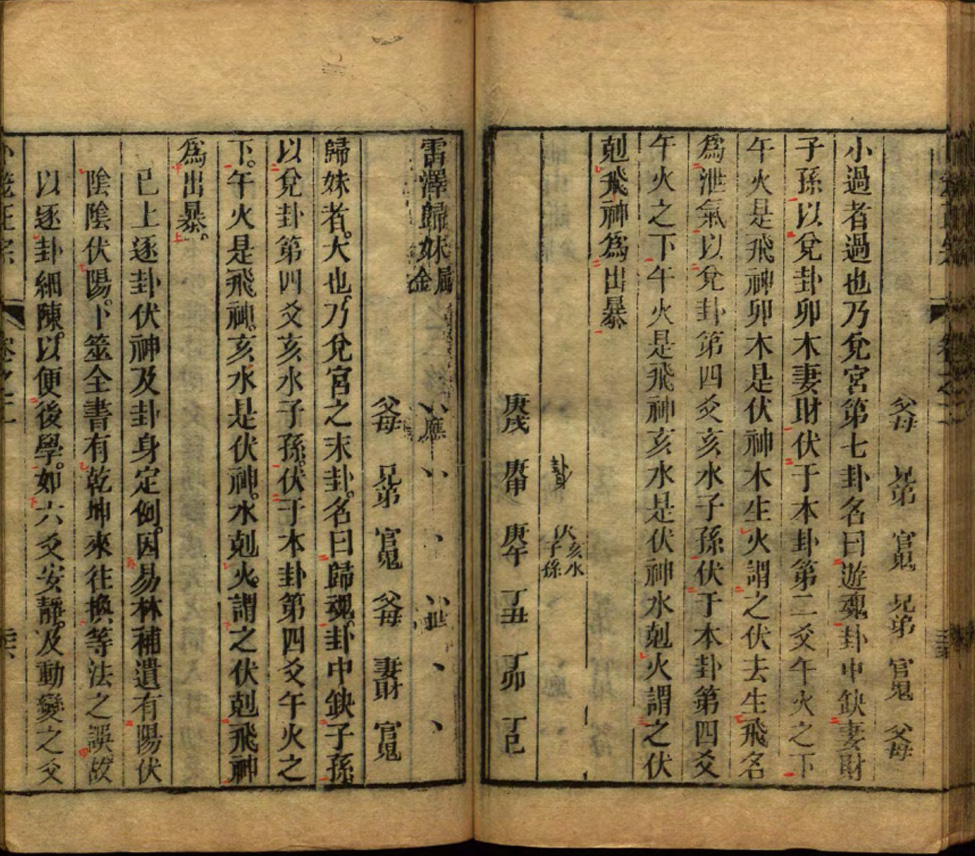 父母 兄弟 官鬼 兄弟 官鬼 父母
小過者過也乃兌宮第七卦名曰遊魂卦中缺妻財
子孫以兌卦卯木妻財伏于本卦第二爻午火之下
午火是飛神卯木是伏神木生火謂之伏去生飛名
為泄氣以兌卦第四爻亥水子孫伏于本卦第四爻
午火之下午火是飛神亥水是伏神水剋火謂之伏
剋飛神為出暴
伏亥水子孫
庚戌 庚申 庚午 丁丑 丁卯 丁巳
雷澤歸妹屬金
應 世
父母 兄弟 官鬼 父母 妻財 官鬼
歸妹者大也乃兌宮之末卦名曰歸魂卦中缺子孫
以兌卦第四爻亥水子孫伏于本卦第四爻午火之
下。午火是飛神。亥水是伏神。水剋火。謂之伏剋飛神
為出暴。
已上逐卦伏神及卦身定例。因易林補遺有陽伏
陰陰伏陽。卜筮全書有乾坤來往換等法之誤。故
以逐卦細陳。以便後學。如六爻安靜。及動變之爻